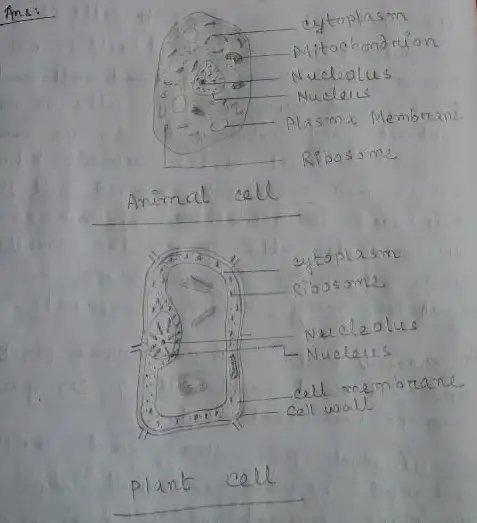 Ans:
cytoplasm
Mitochondrion
Nucleolus
Nucleus
Plasma Membrane
Ribosome
Animal cell
cytoplasm
Ribosome
Nucleolus
Nucleus
cell membrane
cell wall
plant cell